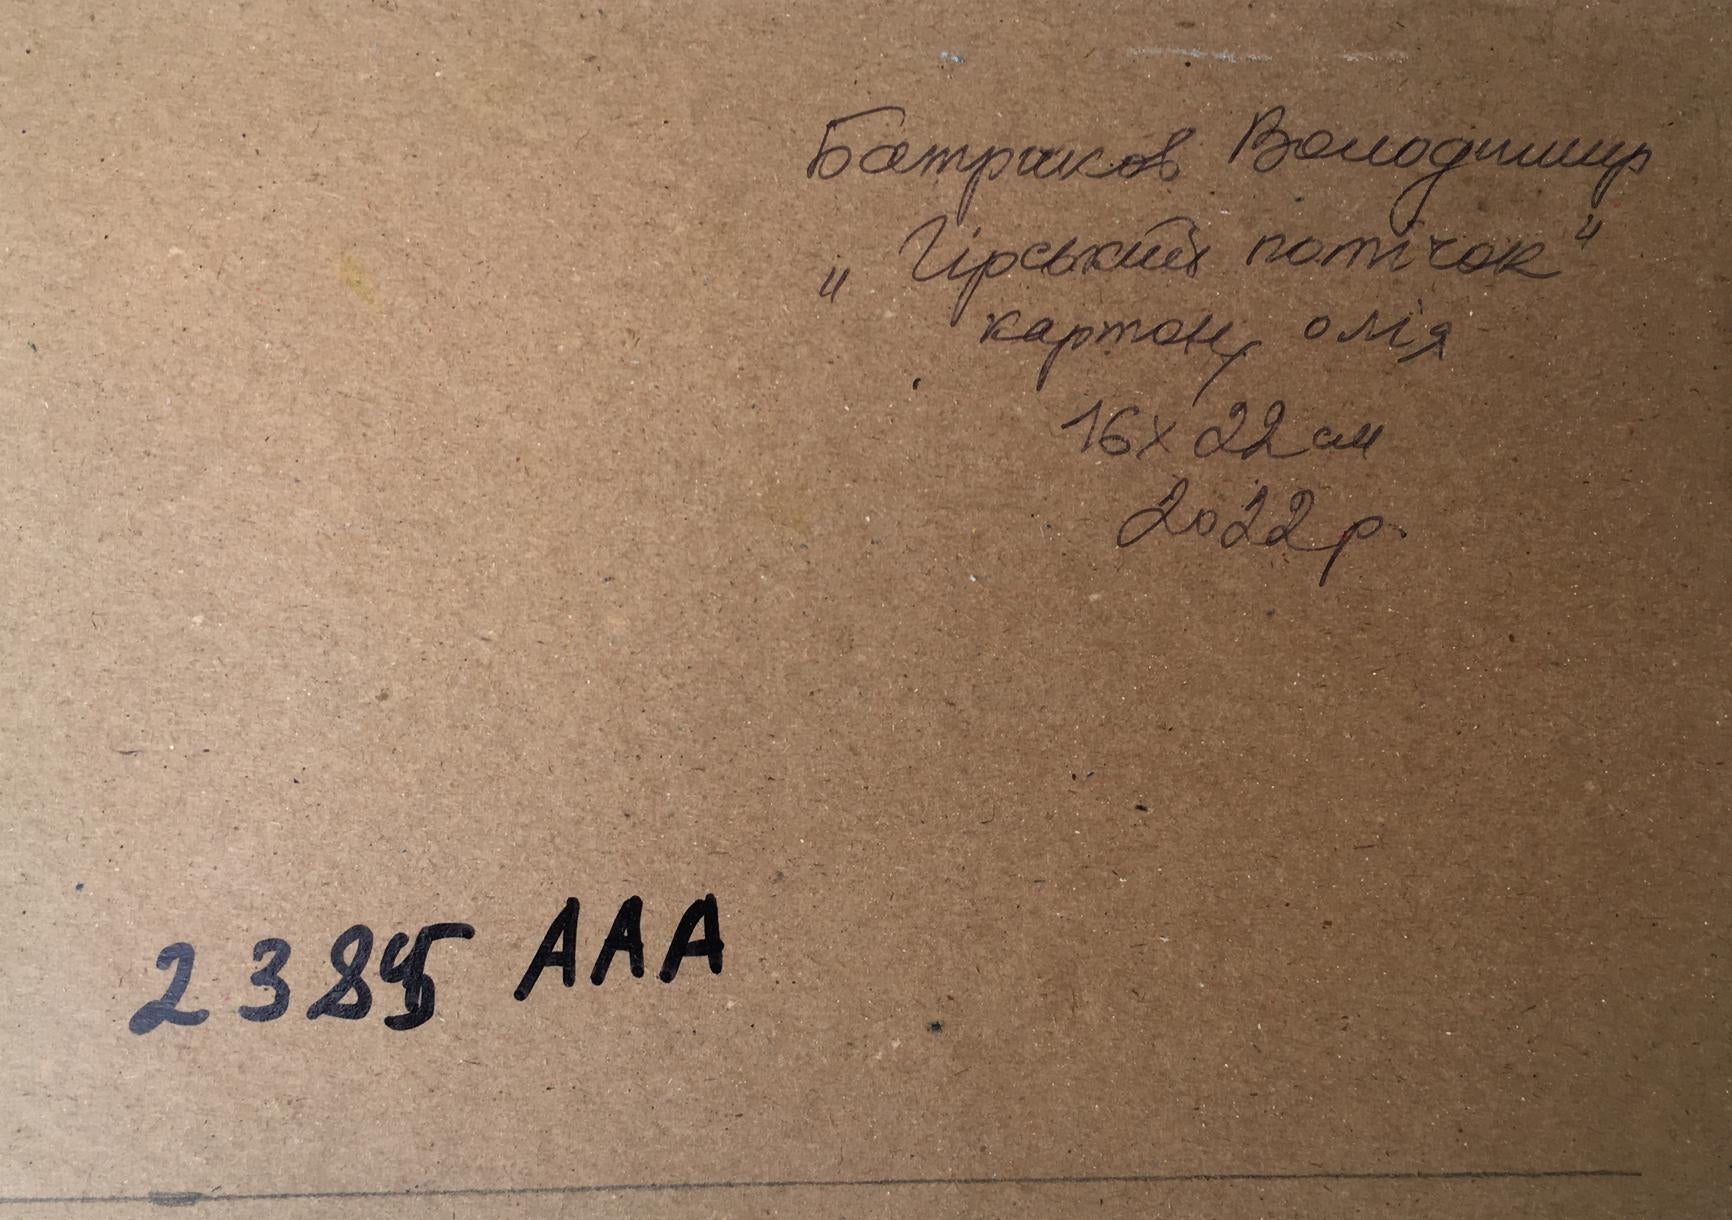 Батраков Володимир
„Гірський потічок"
картон, олія
16х22см
2022р.
2385 ААА